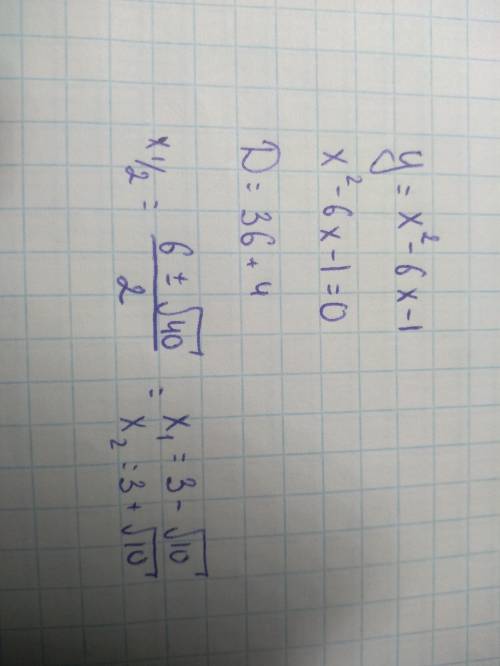 y = x² - 6x - 1
x² - 6x - 1 = 0
D = 36 + 4
x1/2 = (6 ± √40)/2 = x₁ = 3 - √10
x₂ = 3 + √10